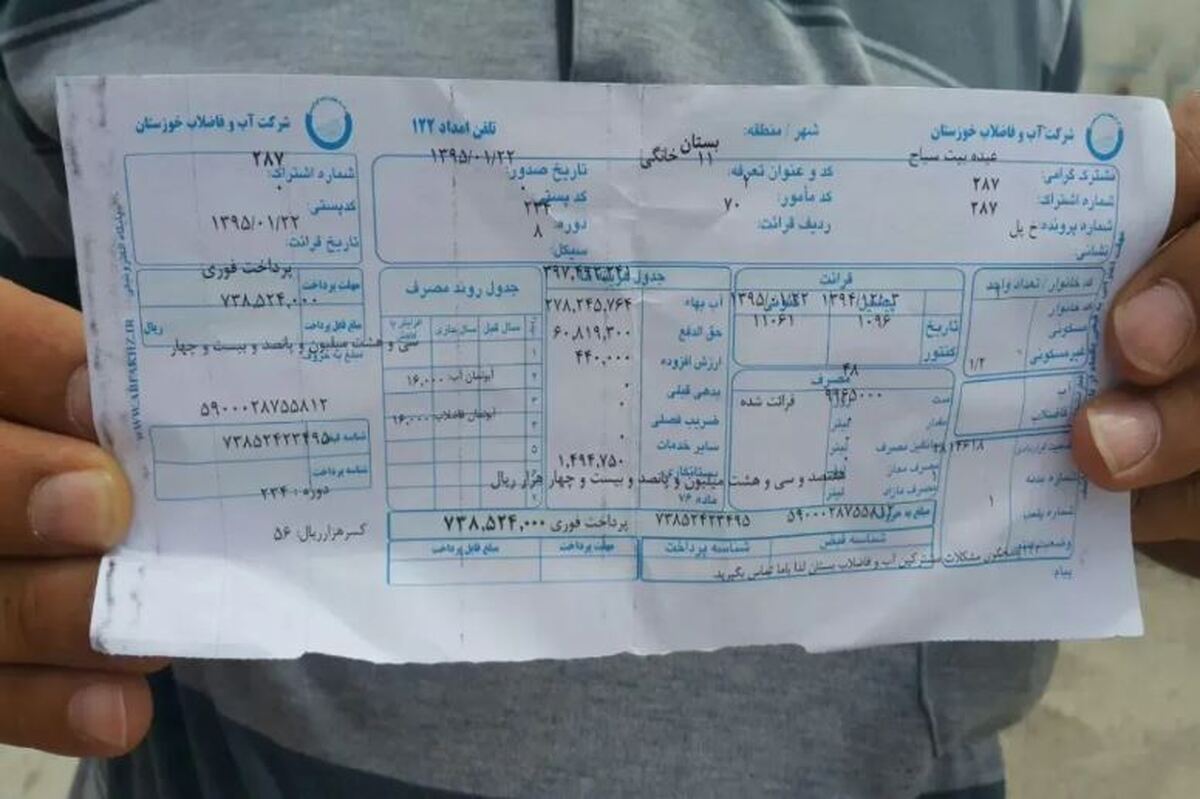 شرکت آب و فاضلاب خوزستان
شهر / منطقه: بستان
تلفن امداد ۱۲۲
مشترک گرامی: عبده بیت سیاح
شماره اشتراک: ۲۸۷
شماره پرونده: ۲۸۷
نشانی: خ پل
کد و عنوان تعرفه: ۱۱ خانگی
کد مأمور: ۲
ردیف قرائت: ۷۰
تاریخ صدور: ۱۳۹۵/۰۱/۲۲
کد پستی: ۰
دوره: ۲۳۴
سیکل: ۸
کد خانوار / تعداد واحد
کد خانوار
مسکونی
غیرمسکونی
۱/۲
آب
فاضلاب
شماره بدنه
شماره پلمب
۱
پیام
قرائت
پیشین
کنونی
تاریخ
۱۳۹۵/۰۱/۲۲
کنتور
۱۰۹۶
۱۱۰۶۱
مصرف
۴۸
۹۹۶۵۰۰۰
قرائت شده
لیتر
لیتر
شناسه قبض
شناسه پرداخت
۵۹۰۰۰۲۸۷۵۵۸۱۲
۷۳۸۵۲۴۲۳۴۹۵
آب بهاء
۲۷۸,۲۴۵,۷۶۴
حق الدفع
۶۰,۸۱۹,۳۰۰
ارزش افزوده
۴۴۰,۰۰۰
بدهی قبلی
۰
ضریب فصلی
۰
سایر خدمات
۰
بستانکاری
۱,۴۹۴,۷۵۰
هفتصد و سی و هشت میلیون و پانصد و بیست و چهار هزار ریال
پرداخت فوری ۷۳۸,۵۲۴,۰۰۰
مهلت پرداخت
مبلغ قابل پرداخت
جدول روند مصرف
سال قبل
سال جاری
آبونمان آب: ۱۶,۰۰۰
آبونمان فاضلاب: ۱۶,۰۰۰
مشکلات مشترکین آب و فاضلاب بستان لذا باما تماس بگیرید.
شرکت آب و فاضلاب خوزستان
شماره اشتراک: ۲۸۷
کدپستی: ۰
تاریخ قرائت: ۱۳۹۵/۰۱/۲۲
مهلت پرداخت
پرداخت فوری
مبلغ قابل پرداخت
۷۳۸,۵۲۴,۰۰۰
ریال
سی و هشت میلیون و پانصد و بیست و چهار
۵۹۰۰۰۲۸۷۵۵۸۱۲
۷۳۸۵۲۴۲۳۴۹۵
شناسه پرداخت
دوره : ۲۳۴
کسرهزارریال: ۵۶
WWW.ABFAKHZ.IR